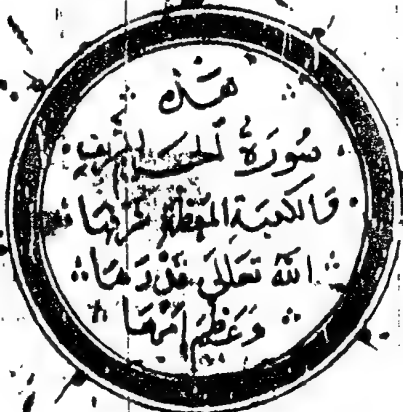 هذه
صورة الحرم الشريف
والكعبة المعظمة شرفها
الله تعالى قدرها
وعظم امرها